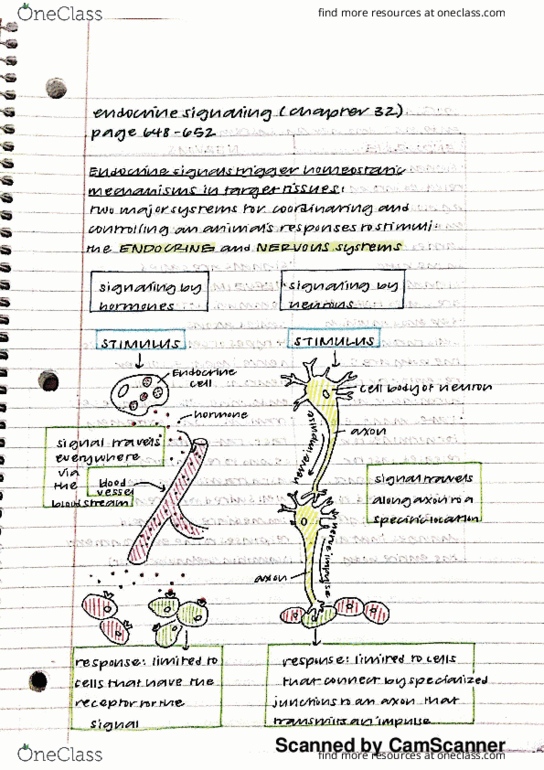 OneClass
find more resources at oneclass.com
endocrine signaling (chapter 32)
page 648-652
Endocrine signals trigger homeostatic
mechanisms in target tissues:
two major systems for coordinating and
controlling an animal's responses to stimuli:
the ENDOCRINE and NERVOUS systems
signaling by
hormones
signaling by
neurons
STIMULUS
STIMULUS
Endocrine
cell
cell body of neuron
hormone
axon
signal travels
everywhere
via
the
bloodstream
blood
vessel
nerve impulse
signal travels
along axon to a
specific location
nerve impulse
axon
response: limited to
cells that have the
receptor for the
signal
response: limited to cells
that connect by specialized
junctions to an axon that
transmits an impulse
Scanned by CamScanner
OneClass
find more resources at oneclass.com